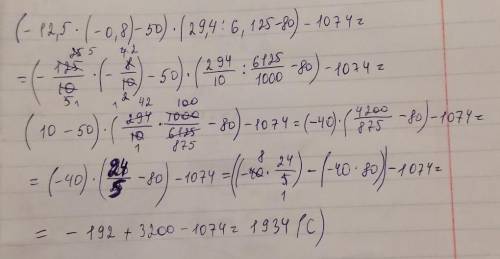 (-12,5·(-0,8)-50)·(29,4:6,125-80)-1074=
=(-125/10·(-8/10)-50)·(294/10:6125/1000-80)-1074=
(10-50)·(294/10·1000/6125-80)-1074=(-40)·(4200/875-80)-1074=
=(-40)·(24/5-80)-1074=((-40·24/5)-(-40·80))-1074=
=-192+3200-1074=1934(C)